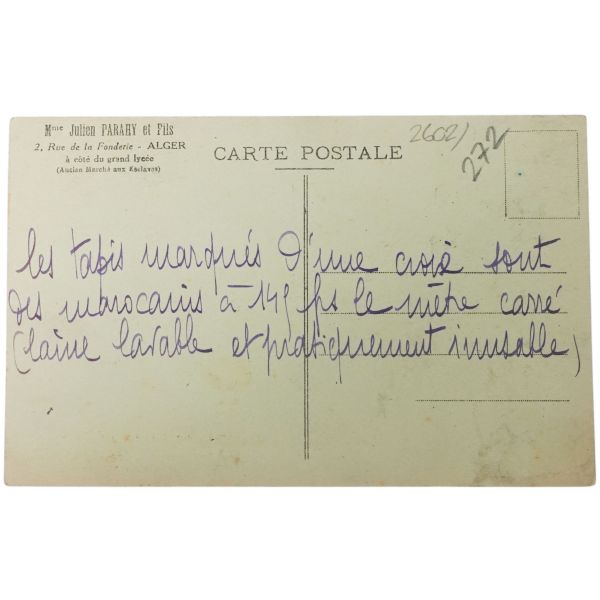 Mme Julien PARAHY et Fils
2, Rue de la Fonderie - ALGER
à côté du grand lycée
(Ancien Marché aux Esclaves)
CARTE POSTALE
2602/
272
les tapis marqués d'une croix sont
des marocains à 149 frs le mètre carré
(laine lavable et pratiquement inusable)